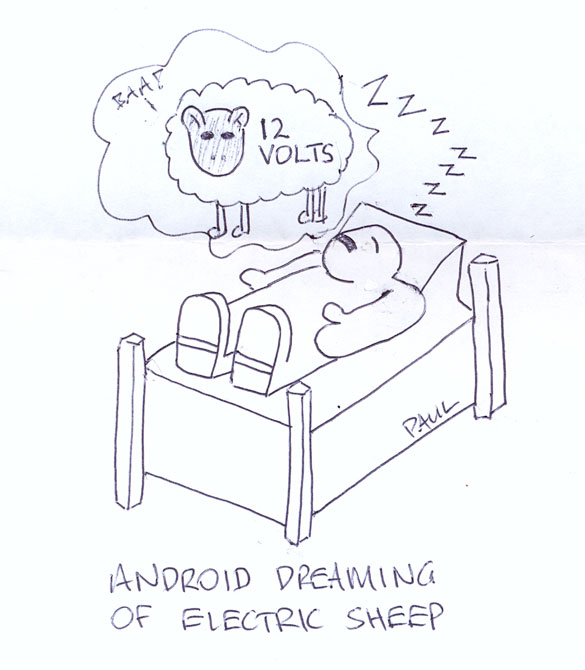 BAA!
12
VOLTS
Z Z Z Z Z Z Z Z
PAUL
ANDROID DREAMING
OF ELECTRIC SHEEP